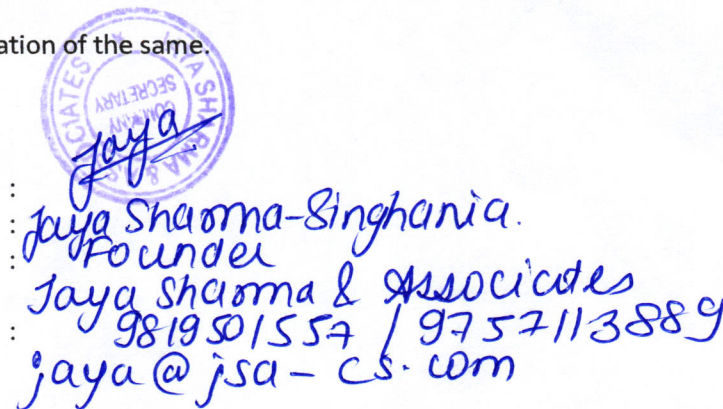 ation of the same.
JAYA SHARMA & ASSOCIATES
COMPANY
SECRETARY
Jaya
:
: Jaya Sharma-Singhania.
: Founder
Jaya Sharma & Associates
: 9819501557 / 9757113889
jaya@jsa-cs.com